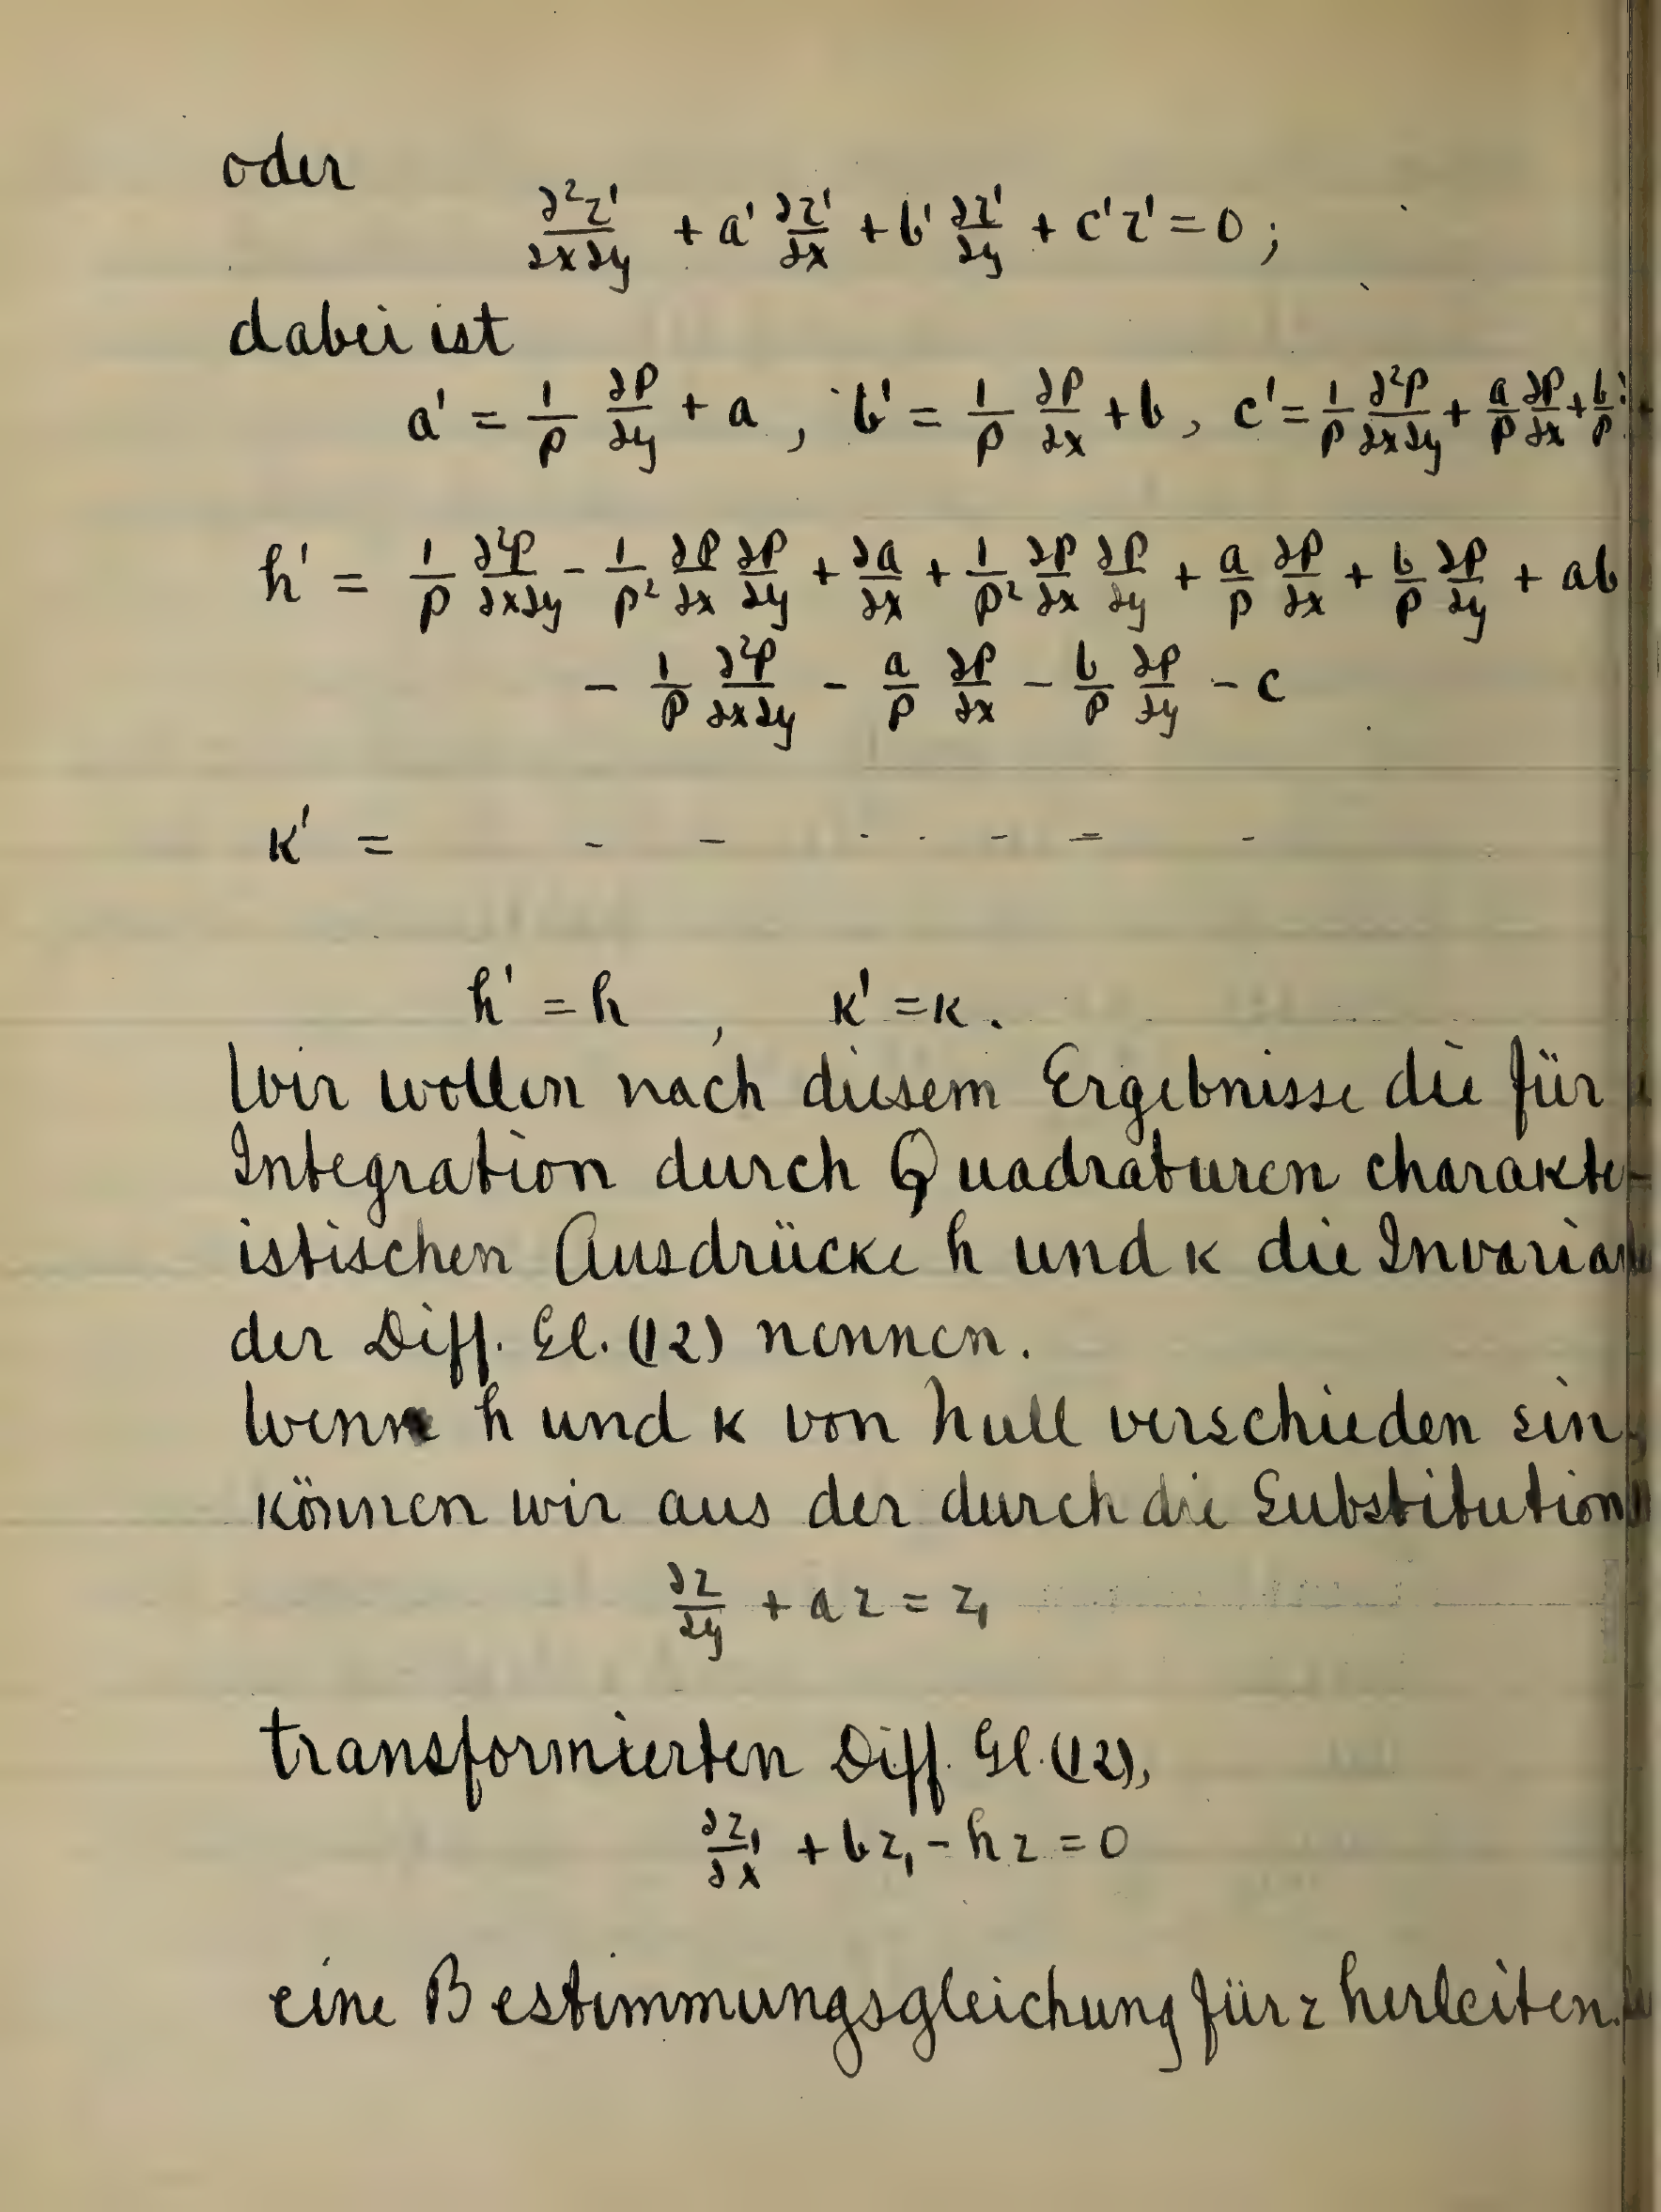 oder
∂²z'/∂x∂y + a' ∂z'/∂x + b' ∂z'/∂y + c'z' = 0 ;
dabei ist
a' = 1/p ∂p/∂y + a , b' = 1/p ∂p/∂x + b, c' = 1/p ∂²p/∂x∂y + a/p ∂p/∂x + b/p
h' = 1/p ∂²p/∂x∂y - 1/p² ∂p/∂x ∂p/∂y + ∂a/∂x + 1/p² ∂p/∂x ∂p/∂y + a/p ∂p/∂x + b/p ∂p/∂y + ab
- 1/p ∂²p/∂x∂y - a/p ∂p/∂x - b/p ∂p/∂y - c
k' = - - · · - = -
h' = h , k' = k.
Wir wollen nach diesem Ergebnisse die für
Integration durch Quadraturen charakte-
istischen Ausdrücke h und k die Invarian
der Diff. Gl. (12) nennen.
Wenn h und k von Null verschieden sin
können wir aus der durch die Substitution
∂z/∂y + az = z₁
transformierten Diff. Gl. (12),
∂z₁/∂x + bz₁ - hz = 0
eine Bestimmungsgleichung für z herleiten.